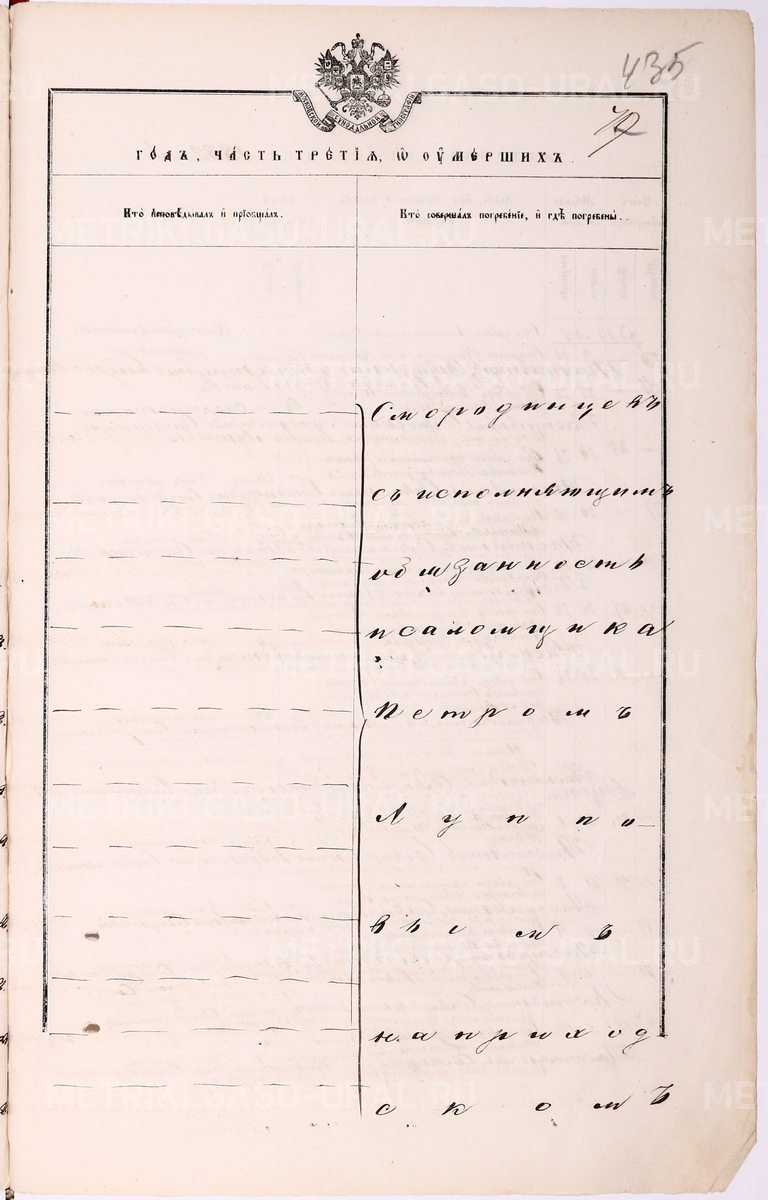 435
МОСКОВСКОЙ СѴНОДАЛЬНОЙ ТИПОГРАФІИ
го́дъ, ча́сть тре́тїѧ, ѡ᾿ ᲂу҆ме́ршихъ.
Кто̀ и҆сповѣ́дывалъ и҆ прїѡбща́лъ.
Кто̀ соверша́лъ погребе́нїе, и҆ гдѣ̀ погребены̀.
Смородинцевъ
съ исполняющимъ
обязанность
псаломщика
Петромъ
Луппо-
вымъ
на приход
скомъ
METRIKI.GASO-URAL.RU